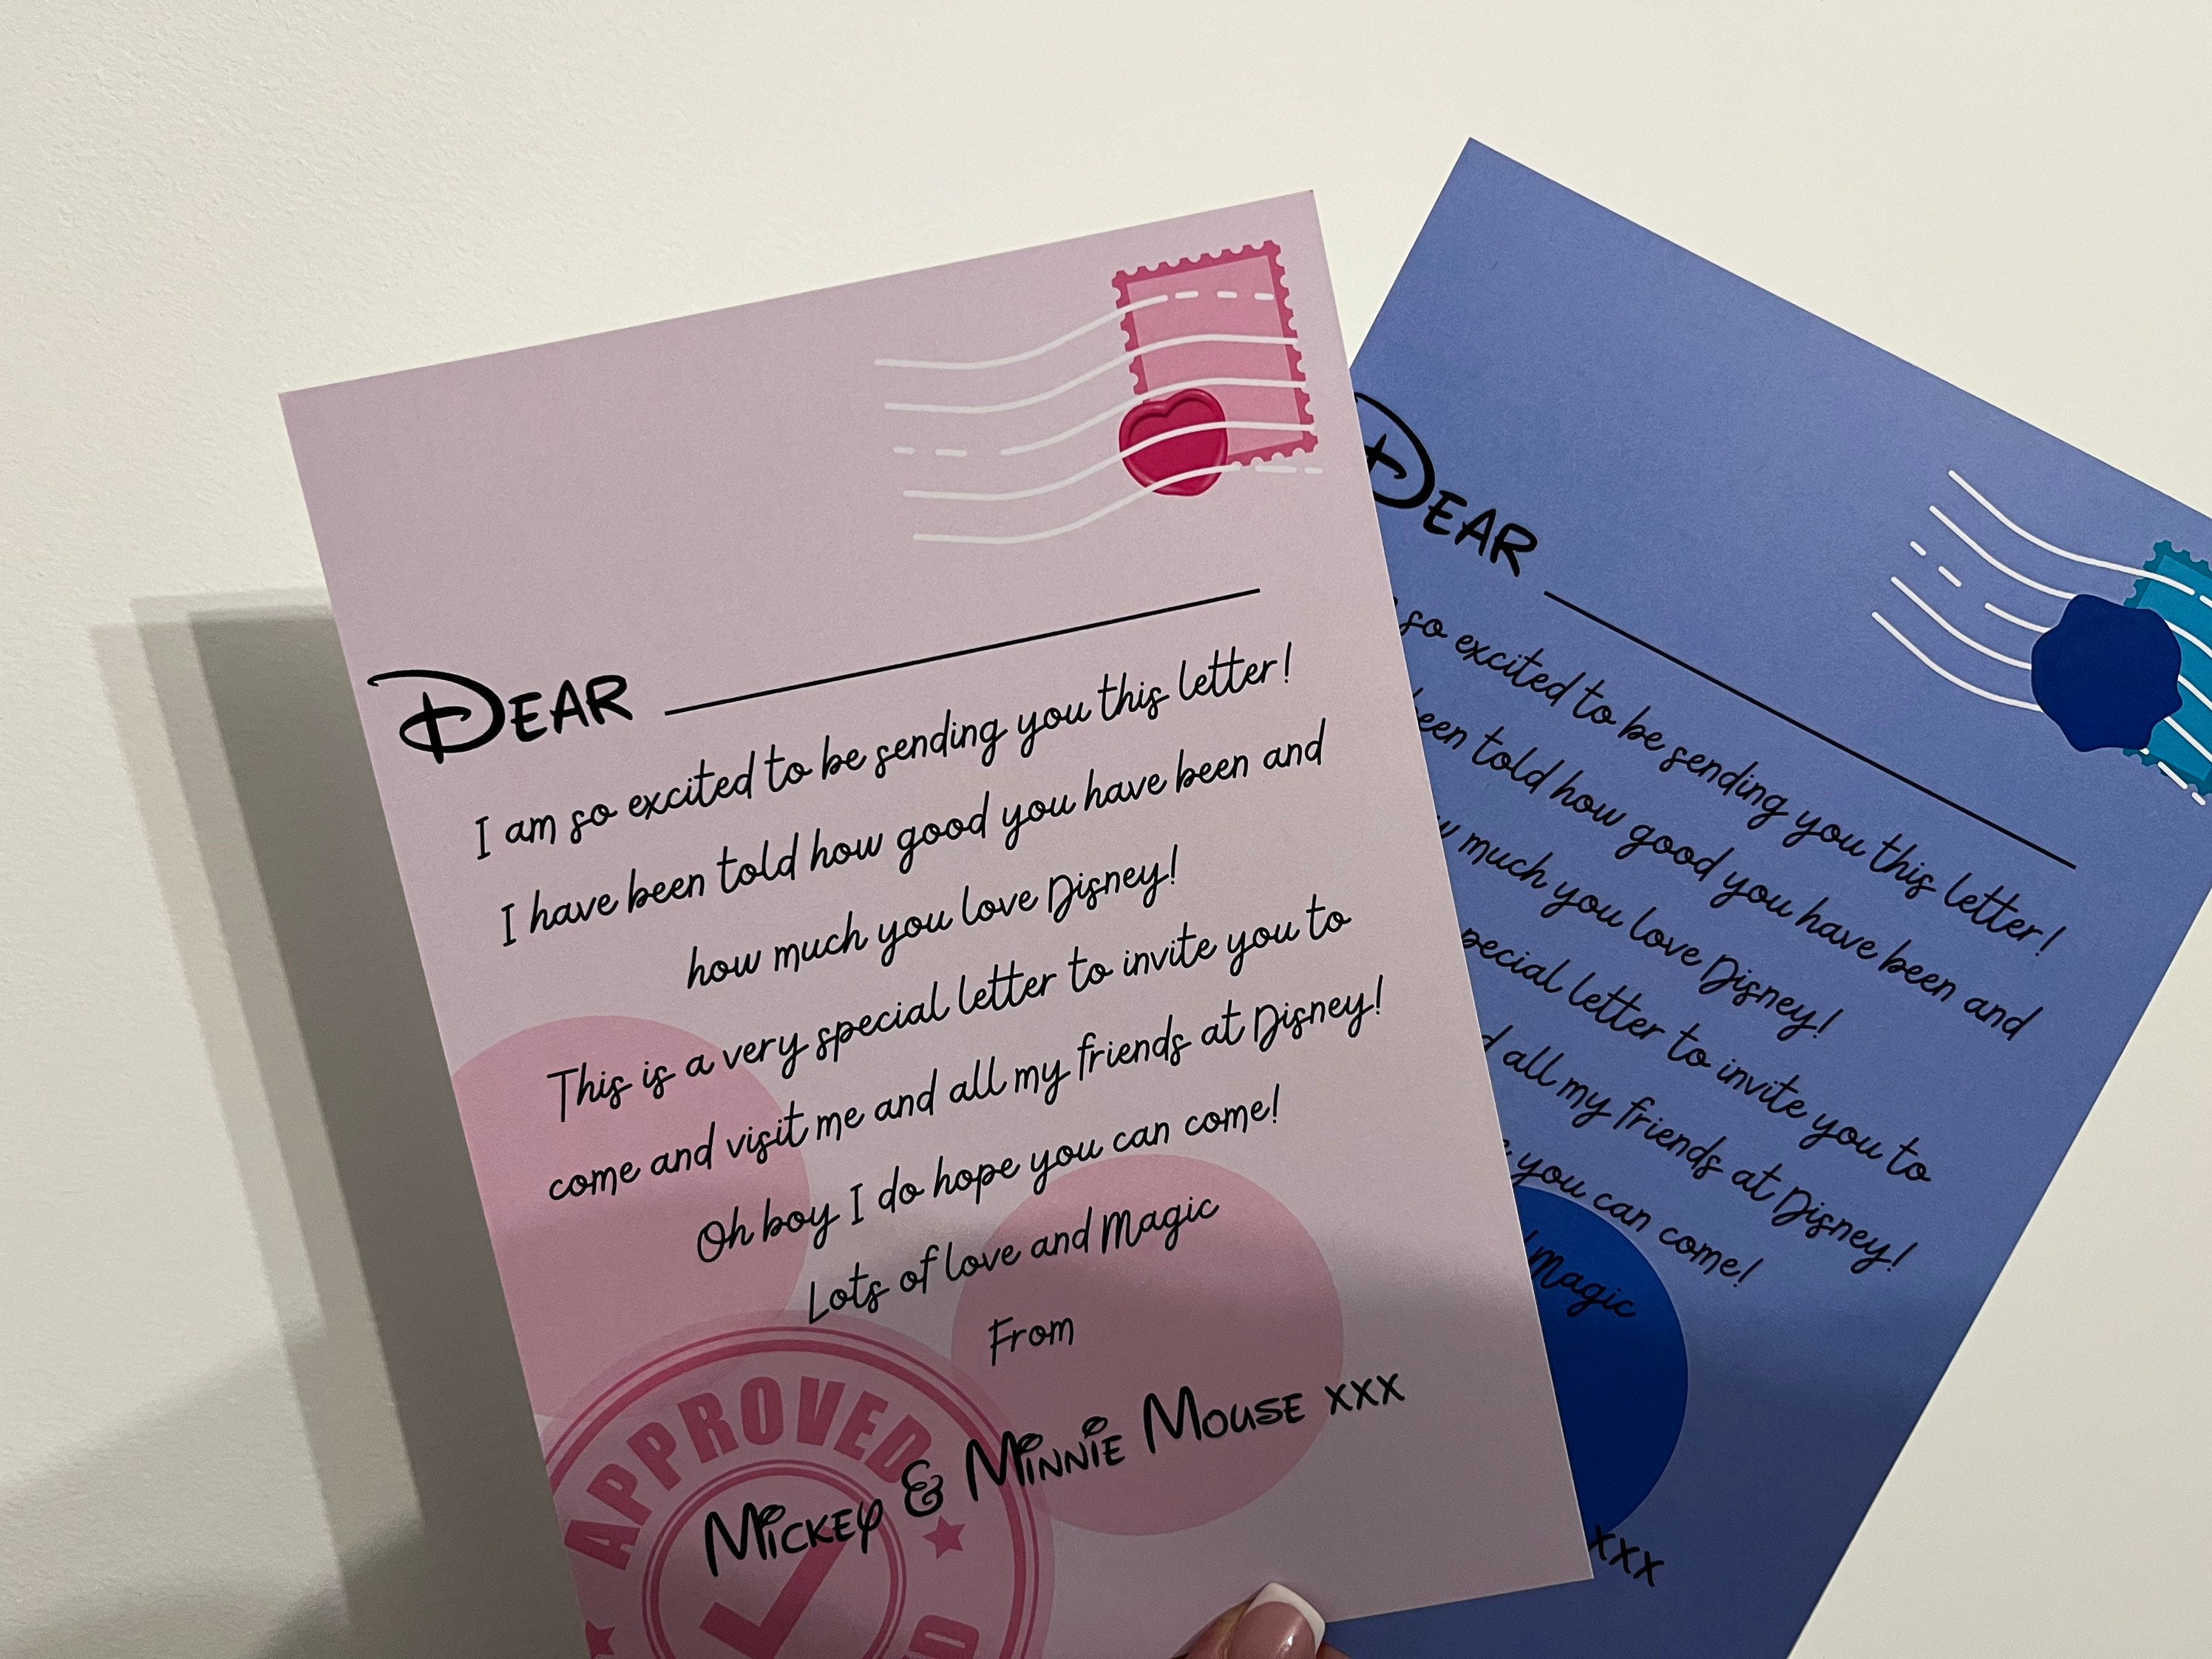 DEAR
I am so excited to be sending you this letter!
I have been told how good you have been and
how much you love Disney!
This is a very special letter to invite you to
come and visit me and all my friends at Disney!
Oh boy I do hope you can come!
Lots of love and Magic
From
MICKEY & MINNIE MOUSE xxx
APPROVED
DEAR
so excited to be sending you this letter!
been told how good you have been and
much you love Disney!
special letter to invite you to
all my friends at Disney!
you can come!
Magic
xxx